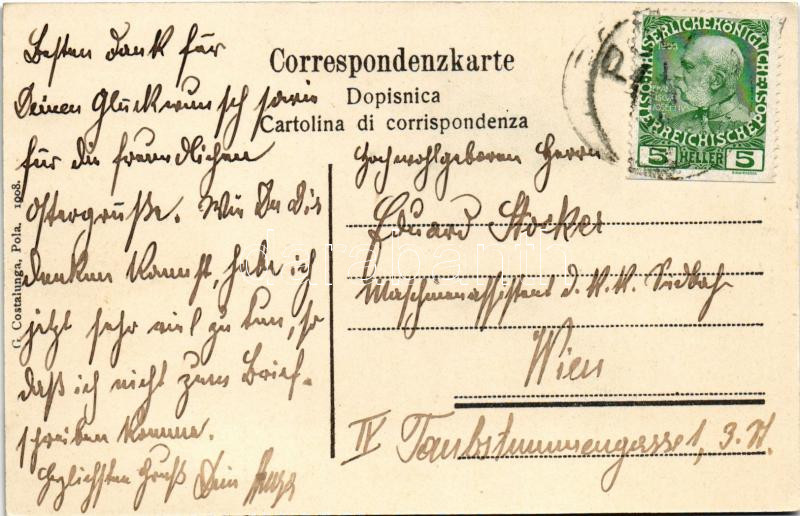 Correspondenzkarte
Dopisnica
Cartolina di corrispondenza
G. Costalunga, Pola. 1908.
Besten Dank für
Deinen Glückwunsch sowie
für die freundlichen
Ostergrüße. Wie Du Dir
denken kannst, habe ich
jetzt sehr viel zu tun, so
daß ich nicht zum Brief-
schreiben komme.
Herzlichsten Gruß Dein
Hochwohlgeboren Herrn
Eduard Stocker
Maschinenassistent d. K.K. Südbah
Wien
IV Taubstummengasse 1, 3. St.
KAISERLICHE KÖNIGLICHE
ÖSTERREICHISCHE POST
5 HELLER 5